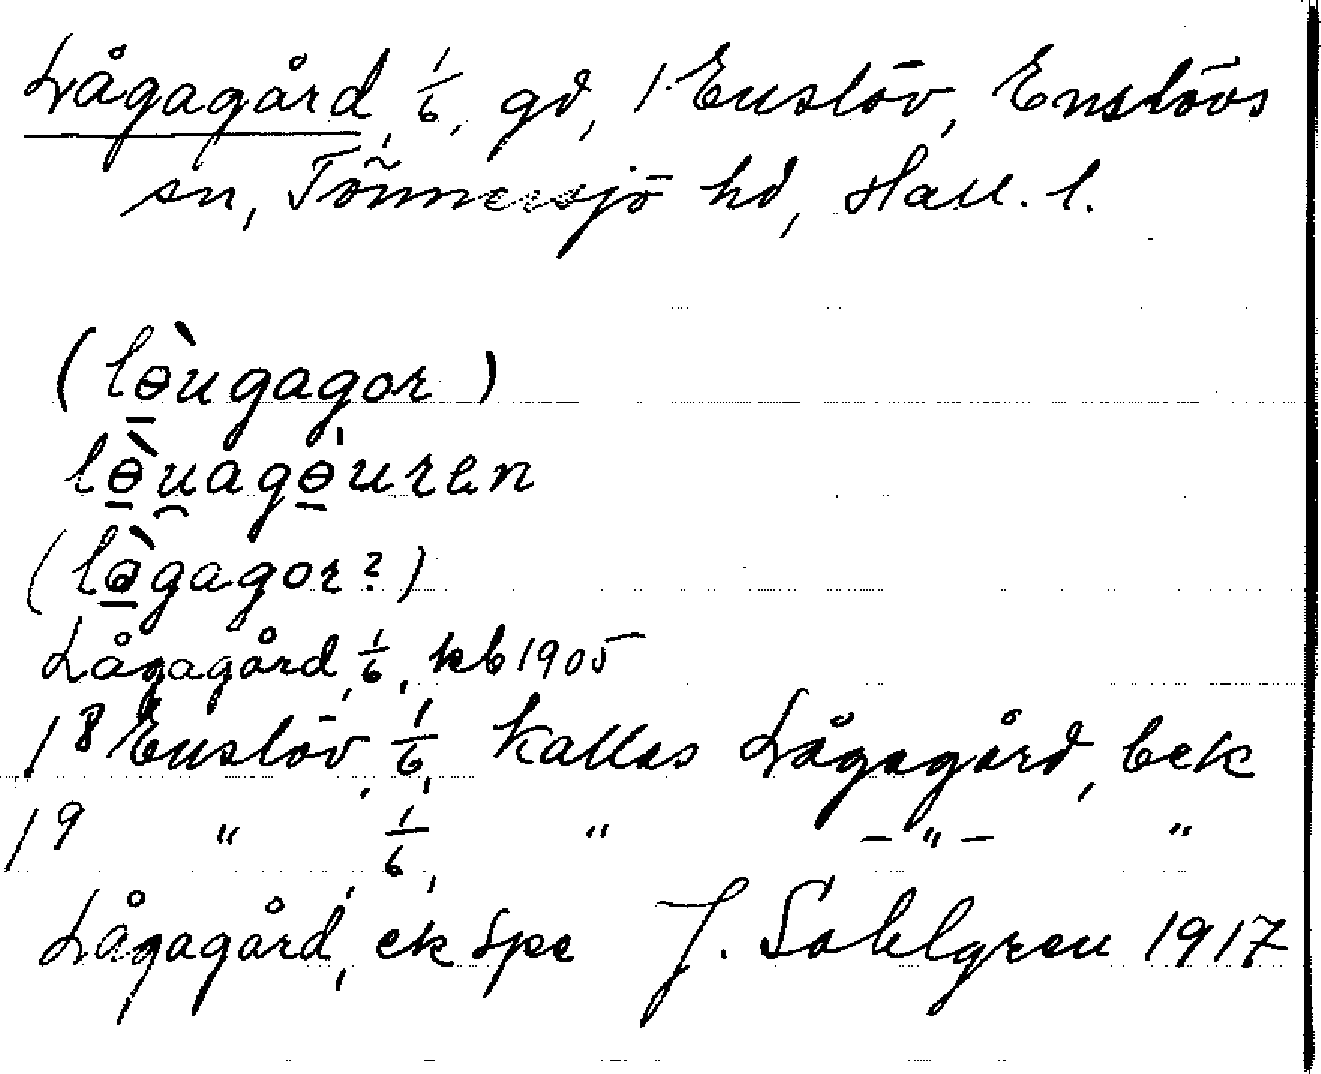 Lågagård, 1/6, gd, 1 Enslöv, Enslövs
sn, Tönnersjö hd, Hall. l.
(lɵ̀ugagor)
lɵ̀uagɵ́uren
(lə̀gagor?)
Lågagård, 1/6, kb 1905
18 Enslöv, 1/6, kallas Lågagård, bek
19 " 1/6, " –"– "
Lågagård, ek Spe J. Sahlgren 1917